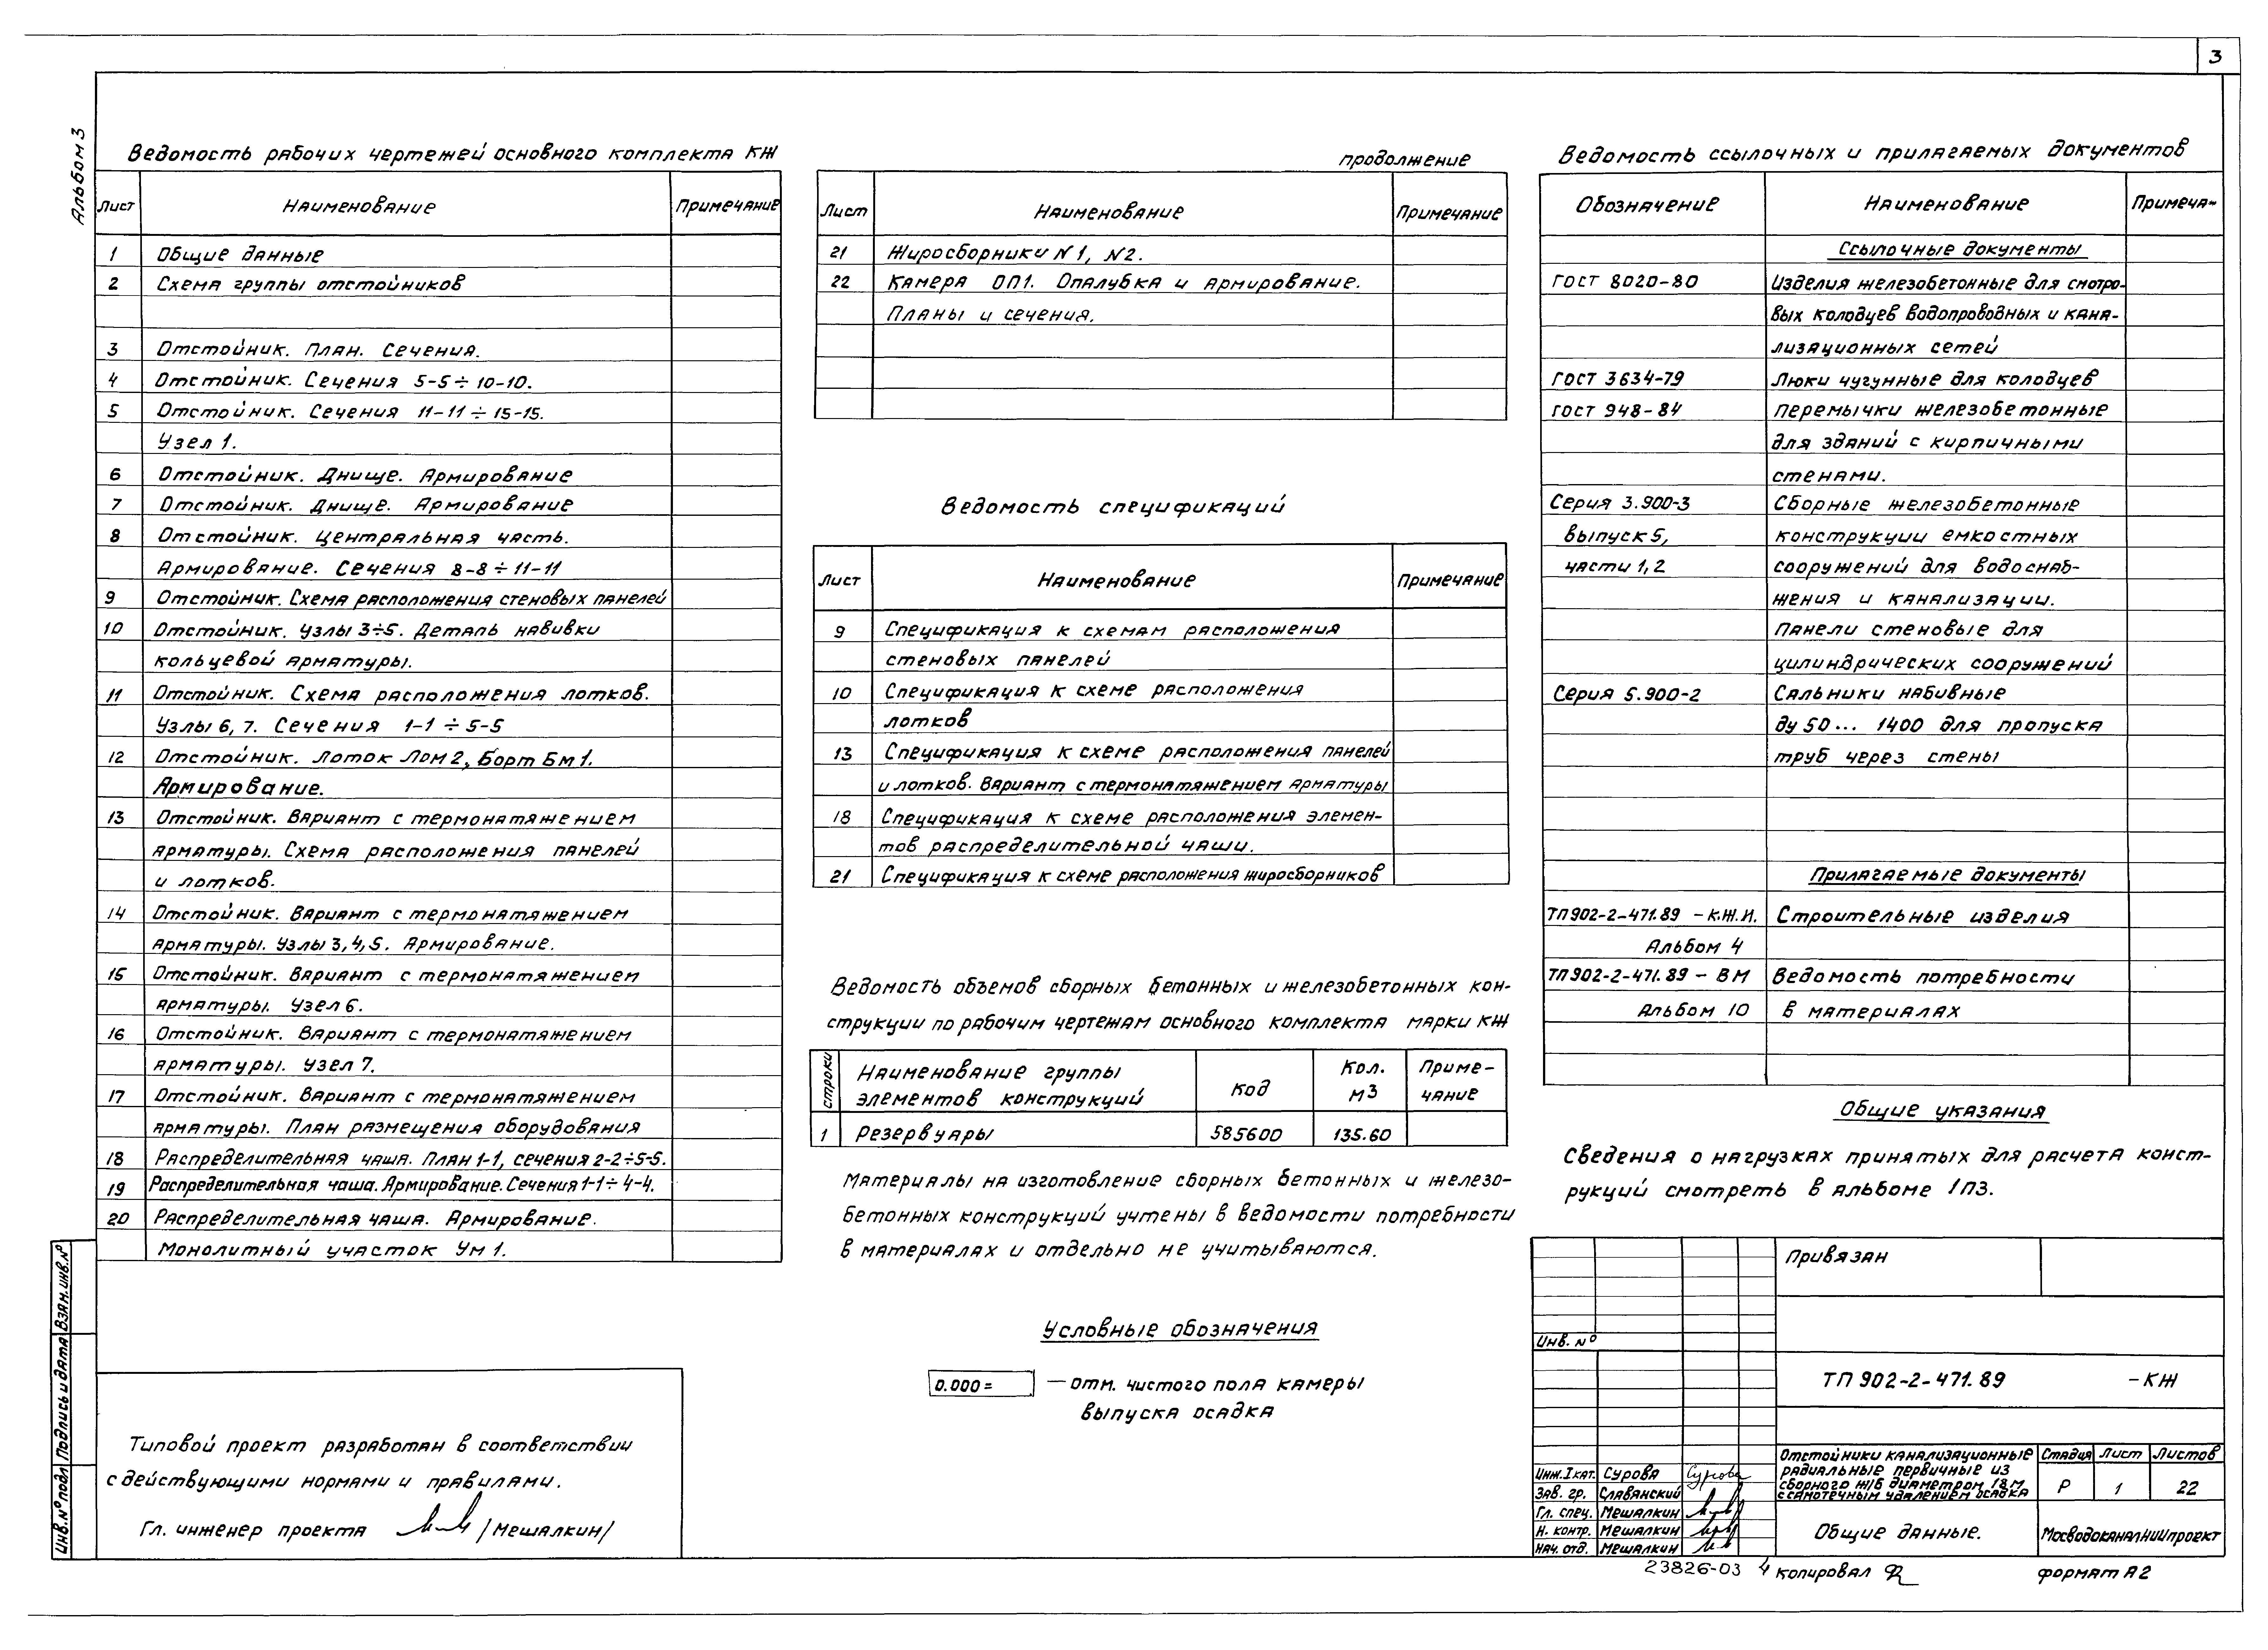 3
Альбом 3
Ведомость рабочих чертежей основного комплекта КЖ
Лист Наименование Примечание
1 Общие данные
2 Схема группы отстойников
3 Отстойник. План. Сечения.
4 Отстойник. Сечения 5-5÷10-10.
5 Отстойник. Сечения 11-11÷15-15.
Узел 1.
6 Отстойник. Днище. Армирование
7 Отстойник. Днище. Армирование
8 Отстойник. Центральная часть.
Армирование. Сечения 8-8÷11-11
9 Отстойник. Схема расположения стеновых панелей
10 Отстойник. Узлы 3÷5. Деталь навивки
кольцевой арматуры.
11 Отстойник. Схема расположения лотков.
Узлы 6, 7. Сечения 1-1÷5-5
12 Отстойник. Лоток Лом 2, Борт Бм 1.
Армирование.
13 Отстойник. Вариант с термонатяжением
арматуры. Схема расположения панелей
и лотков.
14 Отстойник. Вариант с термонатяжением
арматуры. Узлы 3, 4, 5. Армирование.
15 Отстойник. Вариант с термонатяжением
арматуры. Узел 6.
16 Отстойник. Вариант с термонатяжением
арматуры. Узел 7.
17 Отстойник. Вариант с термонатяжением
арматуры. План размещения оборудования
18 Распределительная чаша. План 1-1, сечения 2-2÷5-5.
19 Распределительная чаша. Армирование. Сечения 1-1÷4-4.
20 Распределительная чаша. Армирование.
Монолитный участок Ум 1.
Типовой проект разработан в соответствии
с действующими нормами и правилами.
Гл. инженер проекта /Мешалкин/
Инв.№подл Подпись и дата Взам.инв.№
продолжение
Лист Наименование Примечание
21 Жиросборники N 1, N2.
22 Камера ОП1. Опалубка и армирование.
Планы и сечения.
Ведомость спецификаций
Лист Наименование Примечание
9 Спецификация к схемам расположения
стеновых панелей
10 Спецификация к схеме расположения
лотков
13 Спецификация к схеме расположения панелей
и лотков. Вариант с термонатяжением арматуры
18 Спецификация к схеме расположения элемен-
тов распределительной чаши.
21 Спецификация к схеме расположения жиросборников
Ведомость объемов сборных бетонных и железобетонных кон-
струкции по рабочим чертежам основного комплекта марки КЖ
строки Наименование группы элементов конструкций Код Кол. м3 Приме-чание
1 Резервуары 585600 135.60
Материалы на изготовление сборных бетонных и железо-
бетонных конструкций учтены в ведомости потребности
в материалах и отдельно не учитываются.
Условные обозначения
0.000= — отм. чистого пола камеры
выпуска осадка
Ведомость ссылочных и прилагаемых документов
Обозначение Наименование Примеча-
Ссылочные документы
ГОСТ 8020-80 Изделия железобетонные для смотро-
вых колодцев водопроводных и кана-
лизационных сетей
ГОСТ 3634-79 Люки чугунные для колодцев
ГОСТ 948-84 Перемычки железобетонные
для зданий с кирпичными
стенами.
Серия 3.900-3 Сборные железобетонные
выпуск 5, конструкции емкостных
части 1,2 сооружений для водоснаб-
жения и канализации.
Панели стеновые для
цилиндрических сооружений
Серия 5.900-2 Сальники набивные
ду 50... 1400 для пропуска
труб через стены
Прилагаемые документы
ТП902-2-471.89 -К.Ж.И. Строительные изделия
Альбом 4
ТП902-2-471.89 - ВМ Ведомость потребности
Альбом 10 в материалах
Общие указания
Сведения о нагрузках принятых для расчета конст-
рукций смотреть в альбоме 1ПЗ.
Привязан
Инв. №
ТП 902-2-471.89 -КЖ
Инж.Iкат. Сурова Сурова
Зав. гр. Славянский
Гл. спец. Мешалкин
Н. контр. Мешалкин
Нач. отд. Мешалкин
Отстойники канализационные
радиальные первичные из
сборного ж/б диаметром 18м
с самотечным удалением осадка
Стадия Лист Листов
Р 1 22
Общие данные.
МосводоканалНИИпроект
23826-03 4 копировал
формат А2